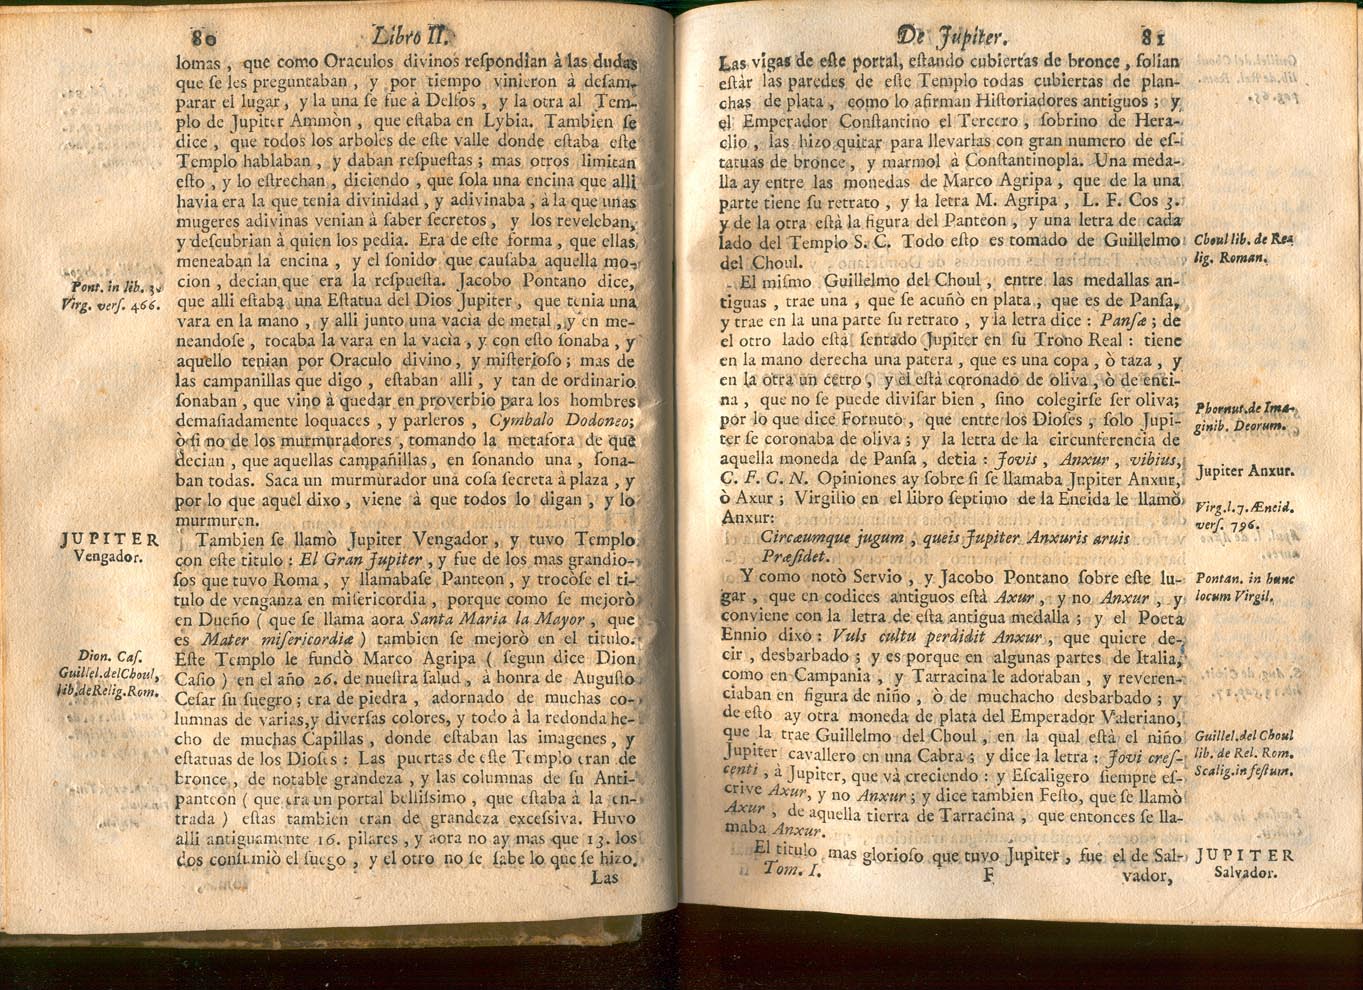 80 Libro II.
lomas , que como Oraculos divinos reſpondian à las dudas
que ſe les preguntaban , y por tiempo vinieron à deſam-
parar el lugar , y la una ſe fue à Delfos , y la otra al Tem-
plo de Jupiter Ammòn , que eſtaba en Lybia. Tambien ſe
dice , que todos los arboles de eſte valle donde eſtaba eſte
Templo hablaban , y daban reſpueſtas ; mas otros limitan
eſto , y lo eſtrechan , diciendo , que ſola una encina que alli
havia era la que tenia divinidad , y adivinaba , à la que unas
mugeres adivinas venian à ſaber ſecretos , y los reveleban,
y deſcubrian à quien los pedia. Era de eſte forma , que ellas
meneaban la encina , y el ſonido que cauſaba aquella mo-
cion , decian que era la reſpueſta. Jacobo Pontano dice,
que alli eſtaba una Eſtatua del Dios Jupiter , que tenia una
vara en la mano , y alli junto una vacia de metal , y en me-
neandoſe , tocaba la vara en la vacia , y con eſto ſonaba , y
aquello tenian por Oraculo divino , y miſterioſo ; mas de
las campanillas que digo , eſtaban alli , y tan de ordinario
ſonaban , que vino à quedar en proverbio para los hombres
demaſiadamente loquaces , y parleros , Cymbalo Dodoneo;
ò ſi no de los murmuradores , tomando la metafora de que
decian , que aquellas campañillas , en ſonando una , ſona-
ban todas. Saca un murmurador una coſa ſecreta à plaza , y
por lo que aquel dixo , viene à que todos lo digan , y lo
murmuren.
Tambien ſe llamò Jupiter Vengador , y tuvo Templo
con eſte titulo : El Gran Jupiter , y fue de los mas grandio-
ſos que tuvo Roma , y llamabaſe Panteon , y trocòſe el ti-
tulo de venganza en miſericordia , porque como ſe mejorò
en Dueño ( que ſe llama aora Santa Maria la Mayor , que
es Mater miſericordiæ ) tambien ſe mejorò en el titulo.
Eſte Templo le fundò Marco Agripa ( ſegun dice Dion
Caſio ) en el año 26. de nueſtra ſalud , à honra de Auguſto
Ceſar ſu ſuegro ; era de piedra , adornado de muchas co-
lumnas de varias,y diverſas colores, y todo à la redonda he-
cho de muchas Capillas , donde eſtaban las imagenes , y
eſtatuas de los Dioſes : Las puertas de eſte Templo eran de
bronce , de notable grandeza , y las columnas de ſu Anti-
panteon ( que era un portal belliſsimo , que eſtaba à la en-
trada ) eſtas tambien eran de grandeza exceſsiva. Huvo
alli antiguamente 16. pilares , y aora no ay mas que 13. los
dos conſumiò el fuego , y el otro no ſe ſabe lo que ſe hizo.
Las
Pont. in lib. 3.
Virg. verſ. 466.
JUPITER
Vengador.
Dion. Caſ.
Guillel.delChoul,
lib.deRelig.Rom.
De Jupiter. 81
Las vigas de eſte portal, eſtando cubiertas de bronce , ſolian
eſtàr las paredes de eſte Templo todas cubiertas de plan-
chas de plata , como lo afirman Hiſtoriadores antiguos ; y
el Emperador Conſtantino el Tercero , ſobrino de Hera-
clio , las hizo quitar para llevarlas con gran numero de eſ-
tatuas de bronce , y marmol à Conſtantinopla. Una meda-
lla ay entre las monedas de Marco Agripa , que de la una
parte tiene ſu retrato , y la letra M. Agripa , L. F. Cos 3.
y de la otra eſtà la figura del Panteon , y una letra de cada
lado del Templo S. C. Todo eſto es tomado de Guillelmo
del Choul.
El miſmo Guillelmo del Choul , entre las medallas an-
tiguas , trae una , que ſe acuñò en plata , que es de Panſa,
y trae en la una parte ſu retrato , y la letra dice : Panſæ ; de
el otro lado eſtà ſentado Jupiter en ſu Trono Real : tiene
en la mano derecha una patera , que es una copa , ò taza , y
en la otra un cetro , y èl eſtà coronado de oliva , ò de enci-
na , que no ſe puede diviſar bien , ſino colegirſe ſer oliva;
por lo que dice Fornuto , que entre los Dioſes , ſolo Jupi-
ter ſe coronaba de oliva ; y la letra de la circunferencia de
aquella moneda de Panſa , decia : Jovis , Anxur , vibius,
C. F. C. N. Opiniones ay ſobre ſi ſe llamaba Jupiter Anxur,
ò Axur ; Virgilio en el libro ſeptimo de la Eneida le llamò
Anxur:
Circæumque jugum , queis Jupiter Anxuris arvis
Præſidet.
Y como notò Servio , y Jacobo Pontano ſobre eſte lu-
gar , que en codices antiguos eſtà Axur , y no Anxur , y
conviene con la letra de eſta antigua medalla ; y el Poeta
Ennio dixo : Vuls cultu perdidit Anxur , que quiere de-
cir , desbarbado ; y es porque en algunas partes de Italia,
como en Campania , y Tarracina le adoraban , y reveren-
ciaban en figura de niño , ò de muchacho desbarbado ; y
de eſto ay otra moneda de plata del Emperador Valeriano,
que la trae Guillelmo del Choul , en la qual eſtà el niño
Jupiter cavallero en una Cabra ; y dice la letra : Jovi creſ-
centi , à Jupiter, que và creciendo : y Eſcaligero ſiempre eſ-
crive Axur, y no Anxur ; y dice tambien Feſto, que ſe llamò
Axur , de aquella tierra de Tarracina , que entonces ſe lla-
maba Anxur.
El titulo mas glorioſo que tuvo Jupiter , fue el de Sal-
Tom. I. F vador,
Choul lib. de Re-
lig. Roman.
Phornut.de Ima-
ginib. Deorum.
Jupiter Anxur.
Virg.l.7.Æneid.
verſ. 796.
Pontan. in hunc
locum Virgil.
Guillel.del Choul
lib. de Rel. Rom.
Scalig.in feſtum.
JUPITER
Salvador.